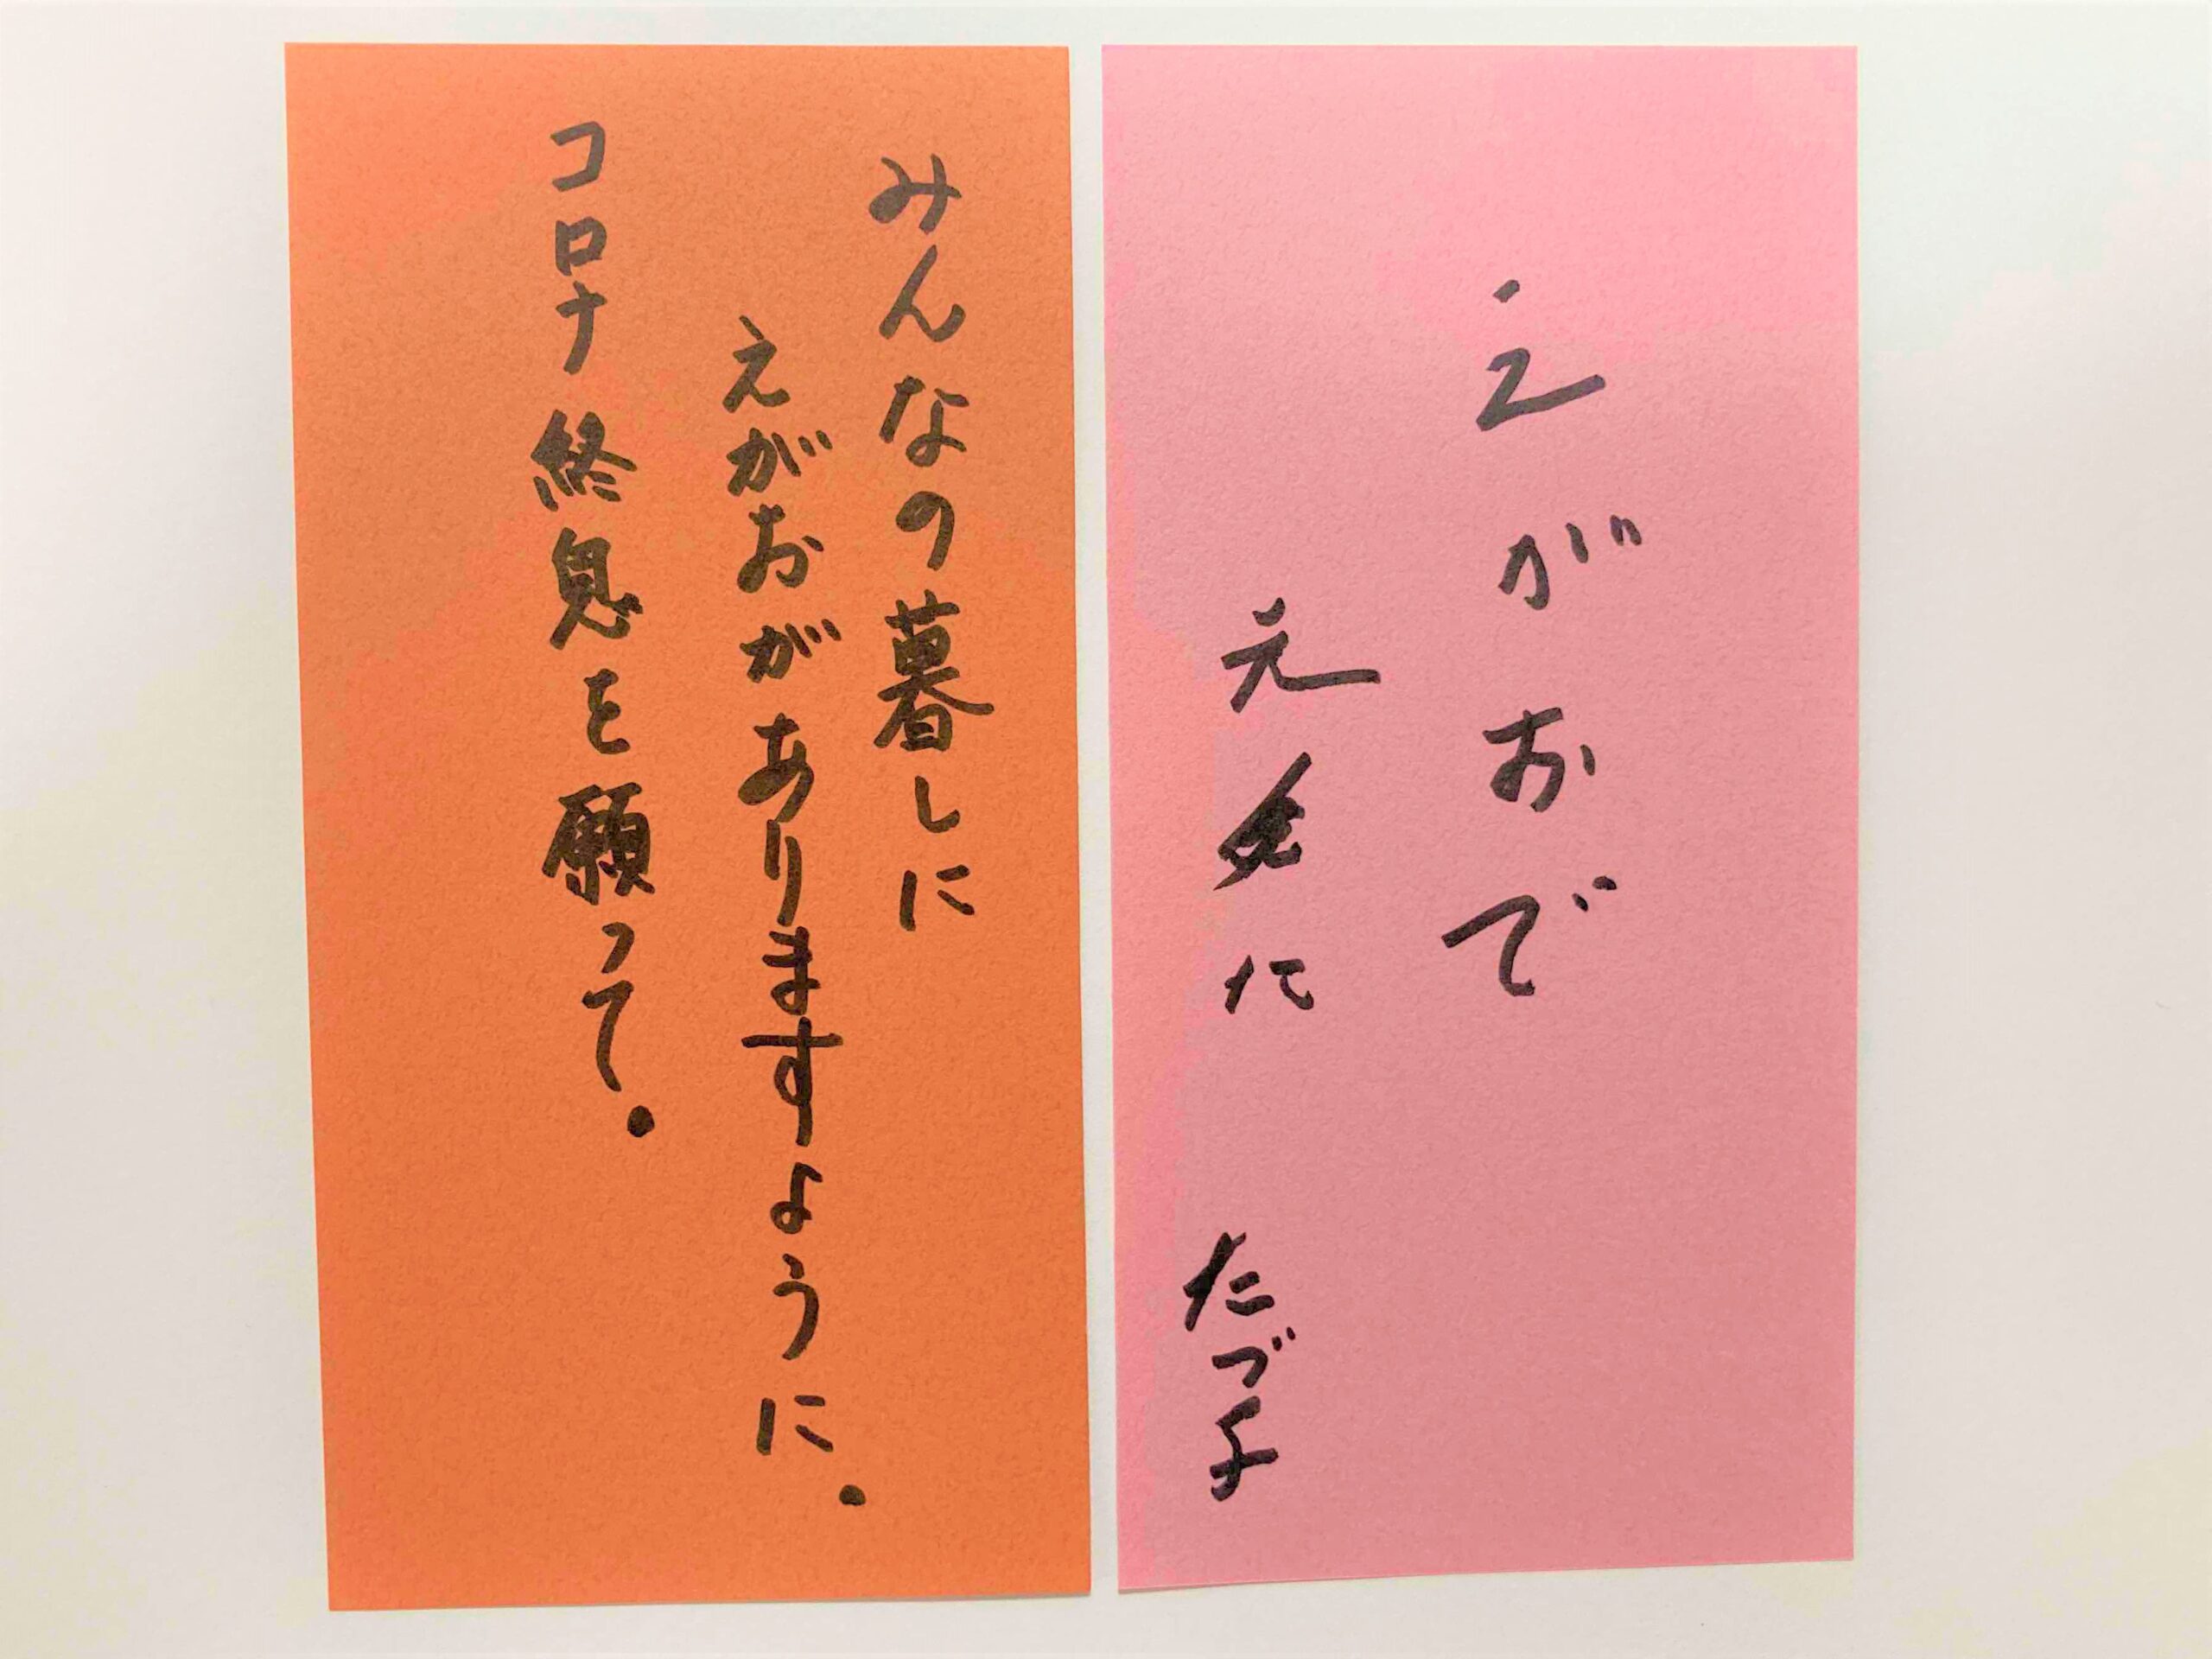 えがおで
元気に
たづ子
みんなの暮しに
えがおがありますように.
コロナ終息を願って.